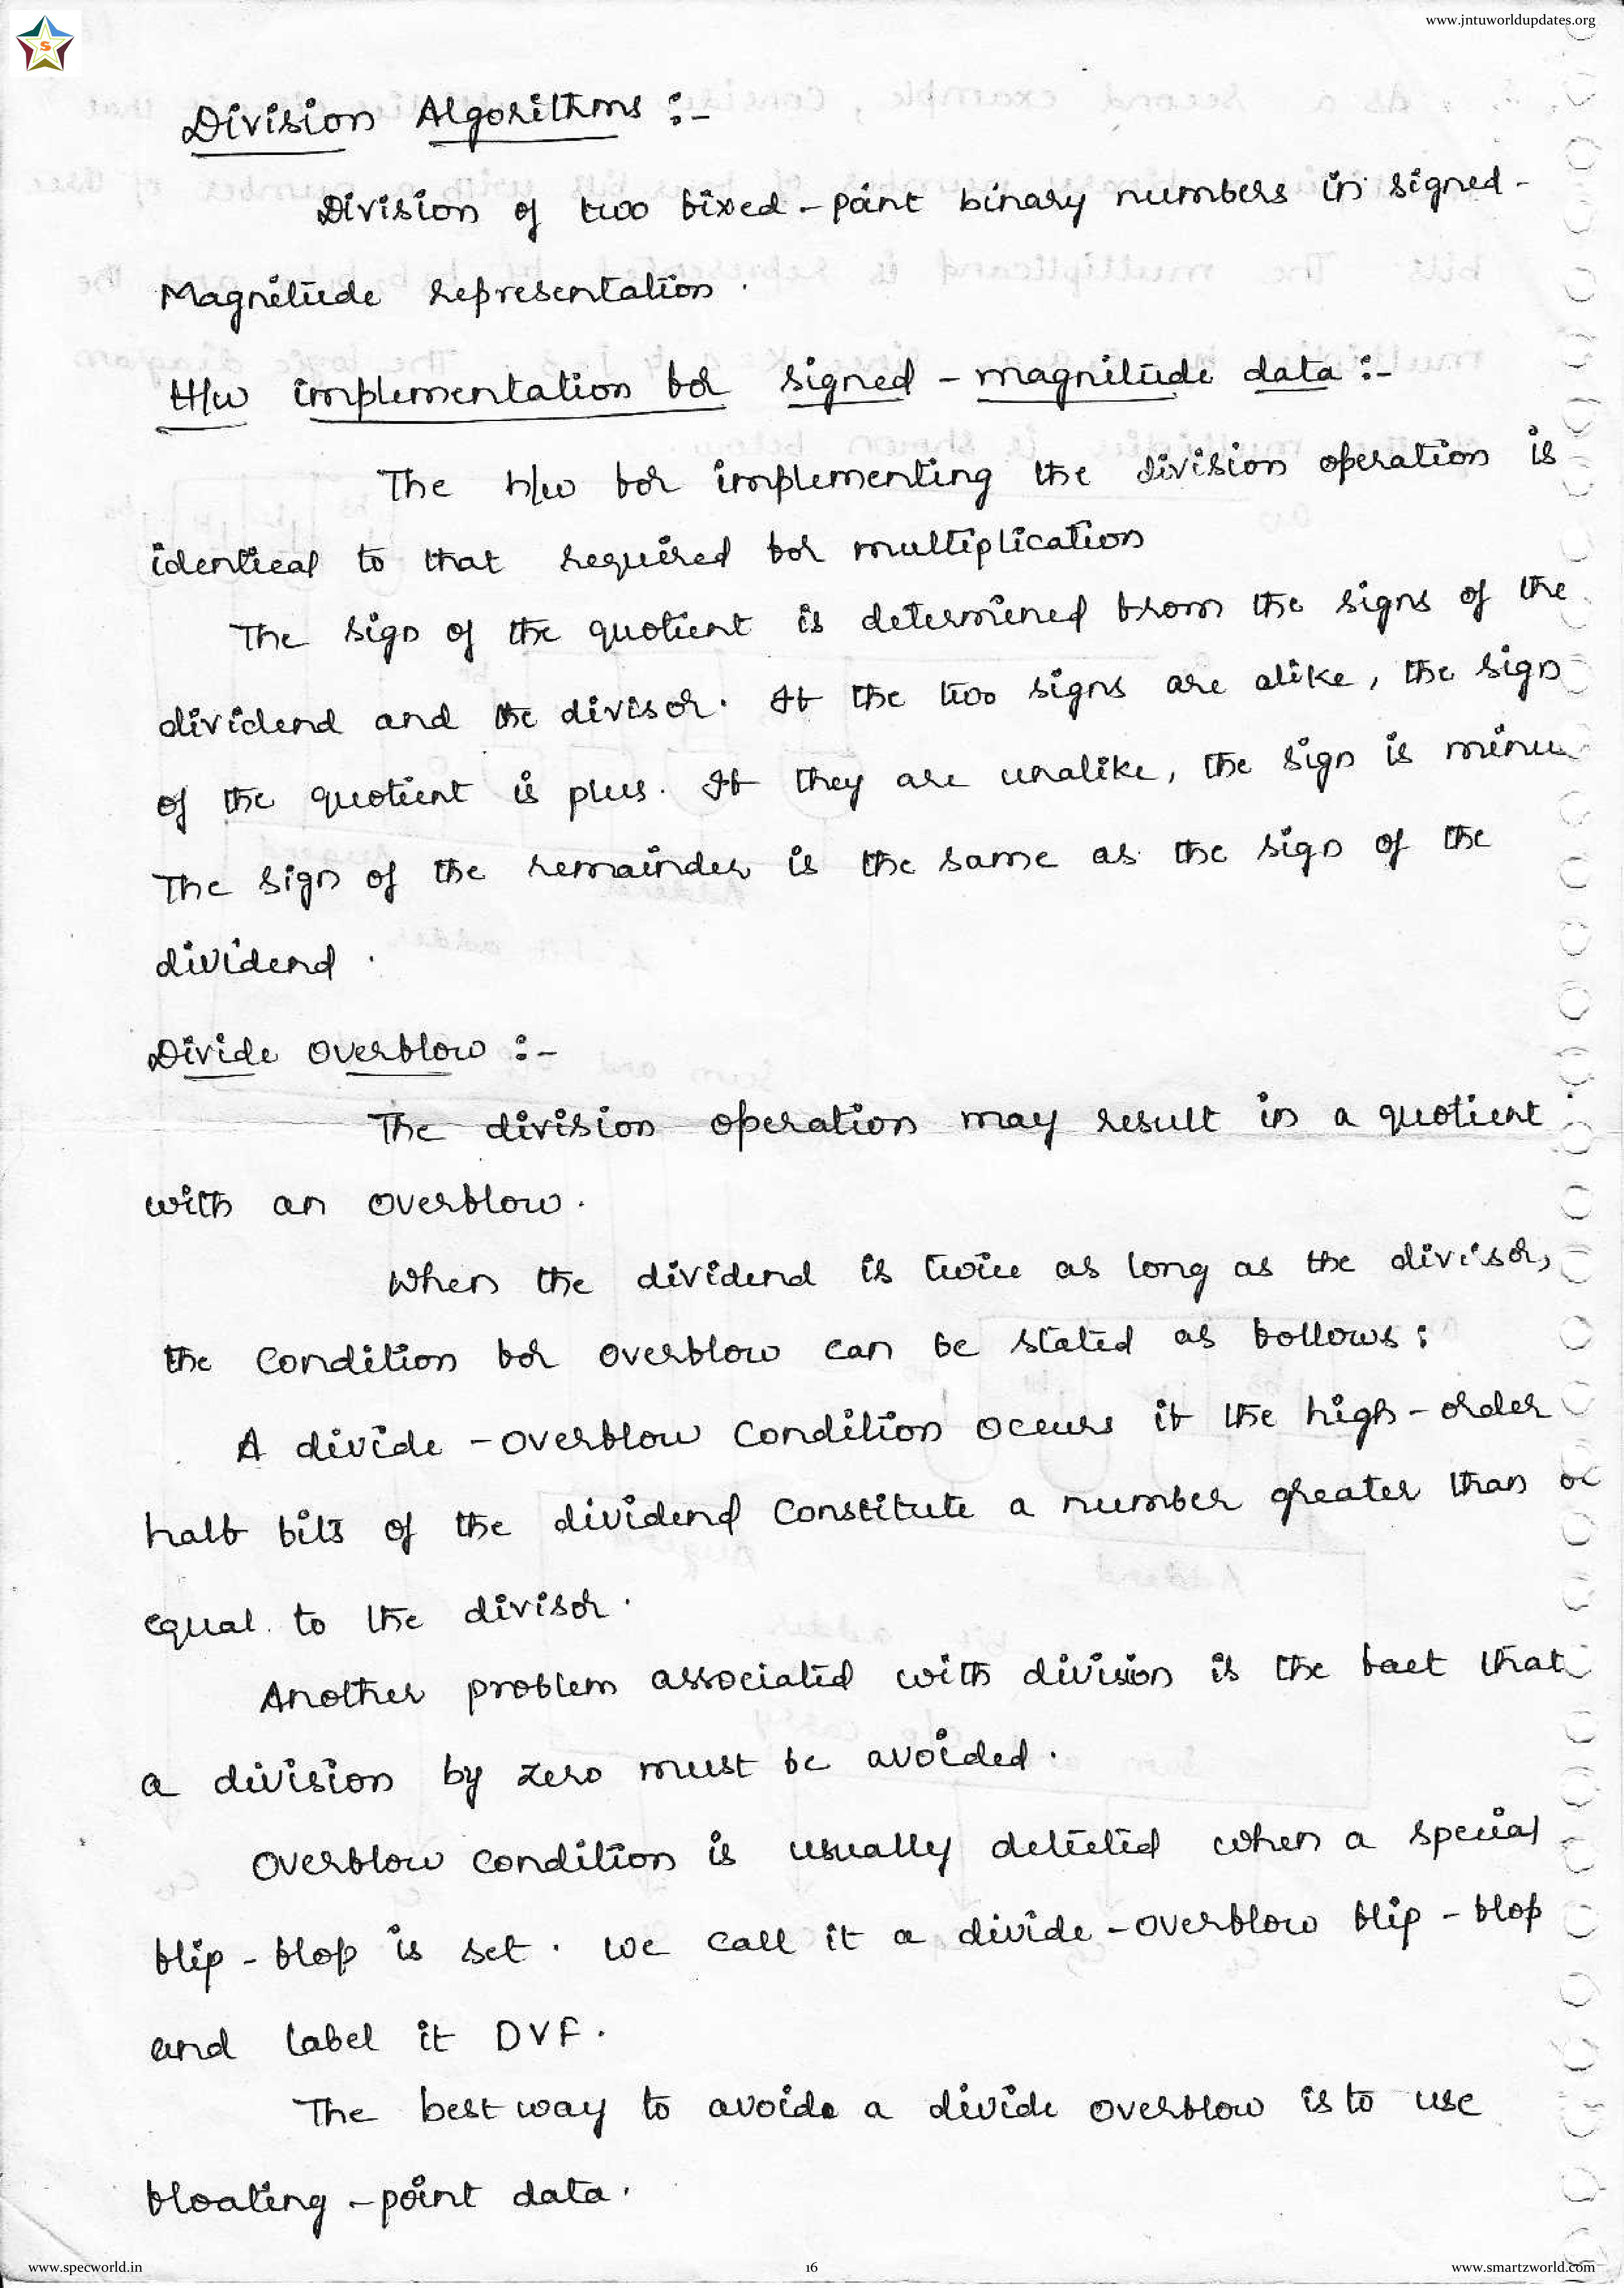 www.jntuworldupdates.org
S
Division Algorithms :-
Division of two fixed-point binary numbers in signed-
Magnitude representation.
H/w implementation for signed - magnitude data :-
The h/w for implementing the division operation is
identical to that required for multiplication
The sign of the quotient is determined from the signs of the
dividend and the divisor. If the two signs are alike, the sign
of the quotient is plus. If they are unalike, the sign is minu
The sign of the remainder is the same as the sign of the
dividend.
Divide Overflow :-
The division operation may result in a quotient
with an overflow.
When the dividend is twice as long as the divisor,
the condition for overflow can be stated as follows:
A divide-overflow condition occurs if the high-order
half bits of the dividend constitute a number greater than or
equal to the divisor.
Another problem associated with division is the fact that
a division by zero must be avoided.
Overflow condition is usually detected when a special
flip-flop is set. We call it a divide-overflow flip-flop
and label it DVF.
The best way to avoide a divide overflow is to use
floating-point data.
www.specworld.in 16 www.smartzworld.com